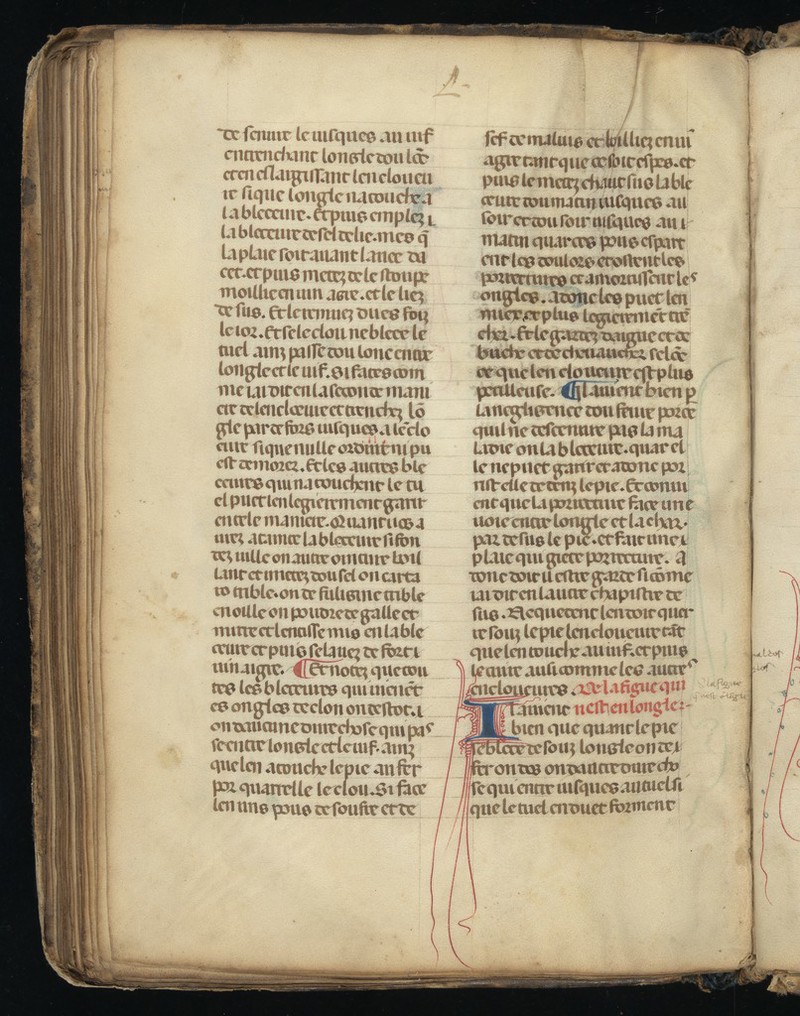 de ferure le uisques au uif
en trenchant longle tou lōc
et en eslargissant lencloueu
re si que longle na touche a
la bleceure. Et puis emplez i
la bleceure de sel delie. mes q̄
la plaie soit auant lauee da
cet. et puis metez de le stoupe
moillie en uin aigre. et le liez
de sus. Et le remuez dues foiz
le ior. Et se le clou ne blece le
tuel ainz passe tou lonc entre
longle et le uif. Si faites com
me iai dit en la seconde mani
ere de lencloeure et trenchez lō
gle par defors iusques a lēclo
eure si que nulle ordure ni pu
est demorer. Et les autres ble
ceures qui na touchent le tu
el puet len legierement garir
en tele maniere. Quant uos a
urez atainte la bleceure si fon
dez uille on autre ointure boil
lant et i metez tou sel on carta
ro trible. on de fuligine trible
en oille on poudre de galle et
mirre et lentisse mis en la ble
ceure et puis se lauez de fort i
uin aigre. Et notez que tou
tes les bleceures qui uienēt
es ongles de clou on destoc. i
on daucune dure chose qui pas
se entre longle et le uif. ainz
que len atouche le pie au fer
por quarrelle le clou. Si face
len uns pous de soufre et de
sef de maluis et boilliez en ui
agre tant que ce soit espes. et
puis le metez chaut sus la ble
ceure tou matin iusques au
soir et tou soir iusques au i
matin quar ces pous espart
ent les doulors et ostent les
porretures et amortissent les
ongles. adonc les puet len
miex et plus legierement trē
chez. Et le gardez daigue et de
buche et de cheuauchez se lōc
ce que len cloueure est plus
perilleuse. Il auient bien p
la negligence dou feure por ce
quil ne descenure pas la ma
ladie on la bleceure. quar el
le ne puet garir et adonc por
rist elle dedenz le pie. Et conui
ent que la porreture face une
uoie entre longle et la char.
par desus le pie. et fait une i
plaie qui giete porreture. a
donc doit il estre garde si cōme
iai dit en lautre chapistre de
sus. Requerent len doit quer
re souz le pie len cloueure tāt
que len touche au uif. et puis
le cure ausi comme les autres
encloueures. De la figue qui
nest en longle:-
Il auient
bien que quant le pie
se blece de souz longle on de i
fer on dos on dautre dure cho
se qui entre iusques au tuel si
que le tuel en duet forment